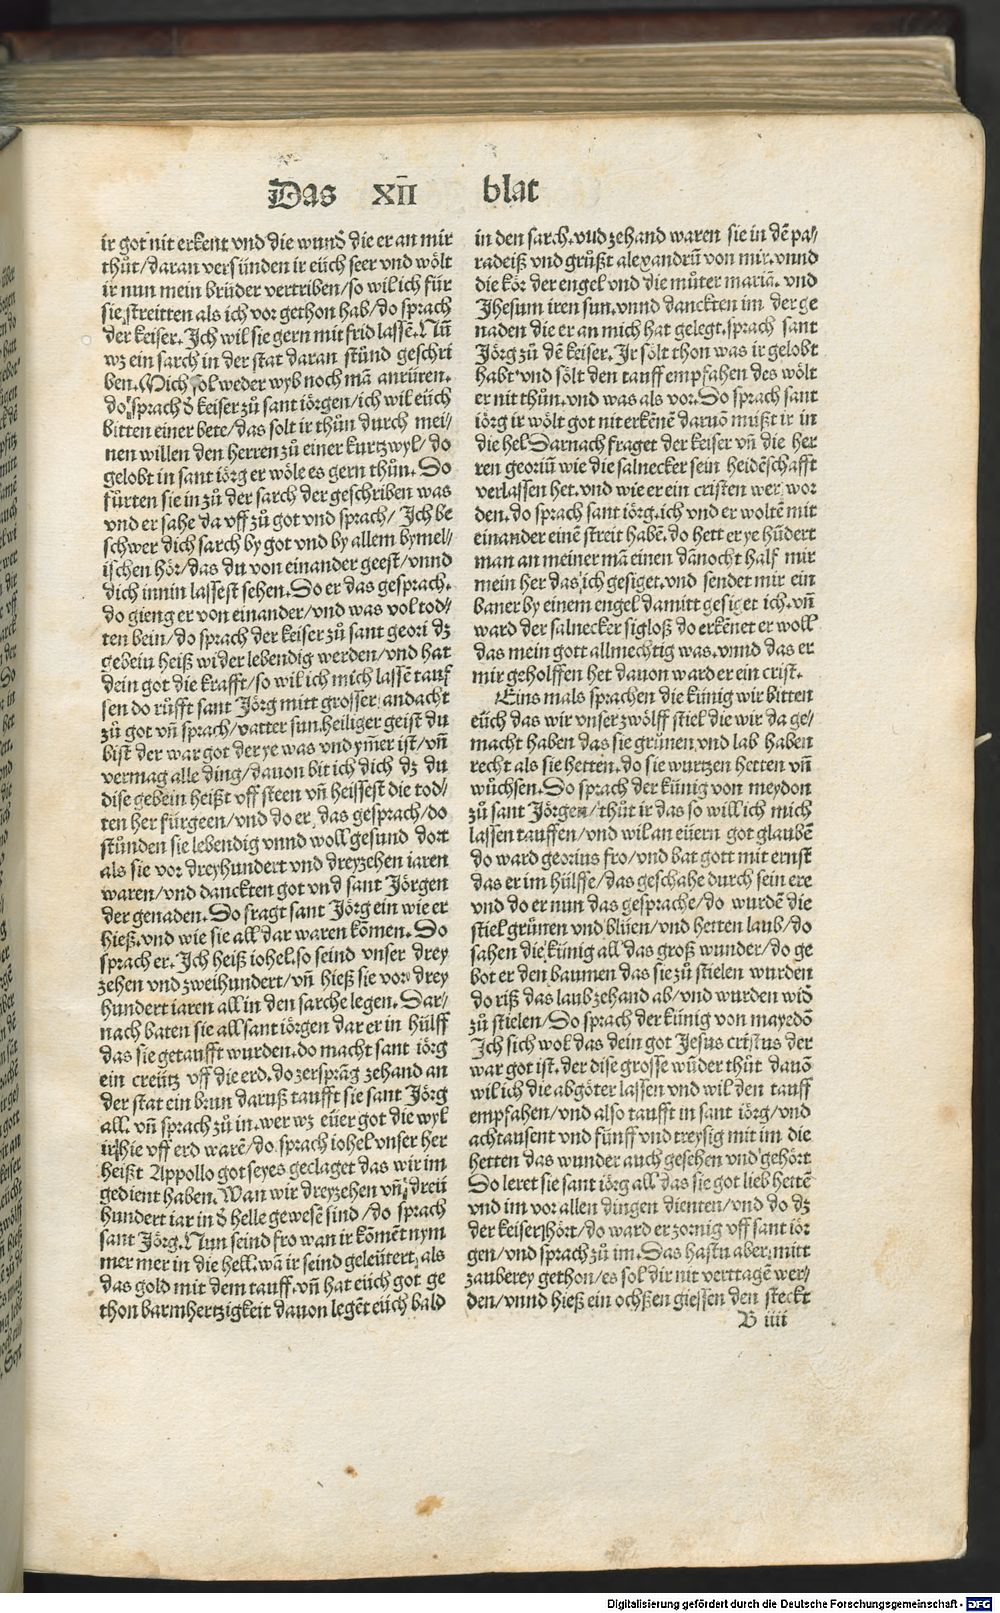 Das XII blat
ir got nit erkent vnd die wund̄ die er an mir
thůt/daran versünden ir eüch seer vnd wölt
ir nun mein brüder vertriben/so wil ich für
sie streitten als ich vor gethon hab/do sprach
der keiser. Ich wil sie gern mit frid lassē. Nū
wz ein sarch in der stat daran stůnd geschri
ben. Mich sol weder wyb noch mā anrüren.
do sprach d̄ keiser zů sant iörgen/ich wil eüch
bitten einer bete/das solt ir thůn durch mei/
nen willen den herren zů einer kurtzwyl/do
gelobt in sant iörg er wöle es gern thůn. So
fůrten sie in zů der sarch der geschriben was
vnd er sahe da vff zů got vnd sprach/ Ich be
schwer dich sarch by got vnd by allem hymel/
ischen hör/das du von einander geest/vnnd
dich innin lassest sehen. So er das gesprach.
do gieng er von einander/vnd was vol tod/
ten bein/do sprach der keiser zů sant geori dz
gebein heiß wider lebendig werden/vnd hat
dein got die krafft/so wil ich mich lassē tauf
fen do růfft sant Jörg mitt grosser andacht
zů got vn̄ sprach/vatter sun heiliger geist du
bist der war got der ye was vnd ym̄er ist/vn̄
vermag alle ding/dauon bit ich dich dz du
dise gebein heißt vff steen vn̄ heissest die tod/
ten her fürgeen/vnd do er das gesprach/do
stůnden sie lebendig vnnd woll gesund dort
als sie vor dreyhundert vnd dreyzehen iaren
waren/vnd danckten got vnd sant Jörgen
der genaden. So fragt sant Jörg ein wie er
hieß. vnd wie sie all dar waren kōmen. So
sprach er. Ich heiß iohel. so seind vnser drey
zehen vnd zweihundert/vn̄ hieß sie vor drey
hundert iaren all in den sarche legen. Dar/
nach baten sie all sant iörgen dar er in hülff
das sie getaufft wurden. do macht sant iörg
ein creütz vff die erd. do zersprāg zehand an
der stat ein brun daruß taufft sie sant Jörg
all. vn̄ sprach zů in. wer wz eüer got die wyl
ir hie vff erd warē/do sprach iohel vnser her
heißt Appollo got seyes geclaget das wir im
gedient haben. Wan wir dreyzehen vn̄ dreü
hundert iar in d̄ helle gewesē sind/do sprach
sant Jörg. Nun seind fro wan ir kōmēt nym
mer mer in die hell. wā ir seind geleütert als
das gold mit dem tauff. vn̄ hat eüch got ge
thon barmhertzigkeit dauon legēt eüch bald
in den sarch. vnd zehand waren sie in dē pa/
radeiß vnd grůßt alexandrū von mir. vnnd
die kör der engel vnd die můter mariā. vnd
Jhesum iren sun. vnnd danckten im der ge
naden die er an mich hat gelegt. sprach sant
Jörg zů dē keiser. Ir sölt thon was ir gelobt
habt vnd sölt den tauff empfahen des wölt
er nit thůn. vnd was als vor. So sprach sant
iörg ir wölt got nit erkēnē daruō můßt ir in
die hel Darnach fraget der keiser vn̄ die her
ren georiū wie die salnecker sein heidēschafft
verlassen het. vnd wie er ein cristen wer wor
den. do sprach sant iörg. ich vnd er woltē mit
einander einē streit habē. do hett er ye hūdert
man an meiner mā einen dānocht half mir
mein her das ich gesiget. vnd sendet mir ein
baner by einem engel damitt gesiget ich. vn̄
ward der salnecker sigloß do erkēnet er woll
das mein gott allmechtig was. vnnd das er
mir geholffen het dauon ward er ein crist.
Eins mals sprachen die künig wir bitten
eüch das wir vnser zwölff stiel die wir da ge/
macht haben das sie grünen vnd lab haben
recht als sie hetten. do sie wurtzen hetten vn̄
wůchsen. So sprach der künig von meydon
zů sant Jörgen/thůt ir das so will ich mich
lassen tauffen/vnd wil an eüern got glaubē
do ward georius fro/vnd bat gott mit ernst
das er im hülffe/das geschahe durch sein ere
vnd do er nun das gesprache/do wurdē die
stiel grünen vnd blüen/vnd hetten laub/do
sahen die künig all das groß wunder/do ge
bot er den baumen das sie zů stielen wurden
do riß das laub zehand ab/vnd wurden wid̄
zů stielen/So sprach der künig von mayedō
Ich sich wol das dein got Jesus cristus der
war got ist. der dise grosse wūder thůt dauō
wil ich die abgöter lassen vnd wil den tauff
empfahen/vnd also taufft in sant iörg/vnd
achtausent vnd fünff vnd treysig mit im die
hetten das wunder auch gesehen vnd gehört
So leret sie sant iörg all das sie got lieb hettē
vnd im vor allen dingen dienten/vnd do dz
der keiser hört/do ward er zornig vff sant iör
gen/vnd sprach zů im. Das hastu aber mitt
zauberey gethon/es sol dir nit verttagē wer/
den/vnnd hieß ein ochßen giessen den steckt
B iiii
Digitalisierung gefördert durch die Deutsche Forschungsgemeinschaft - DFG